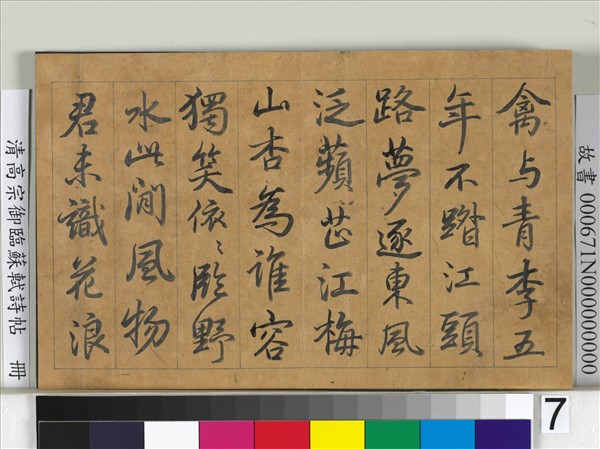 故書 000671N000000000
禽与青李五
年不踏江頭
路夢逐東風
泛蘋芷江梅
山杏為誰容
獨笑依〻臨野
水此間風物
君未識花浪
清高宗御臨蘇軾詩帖 冊
7